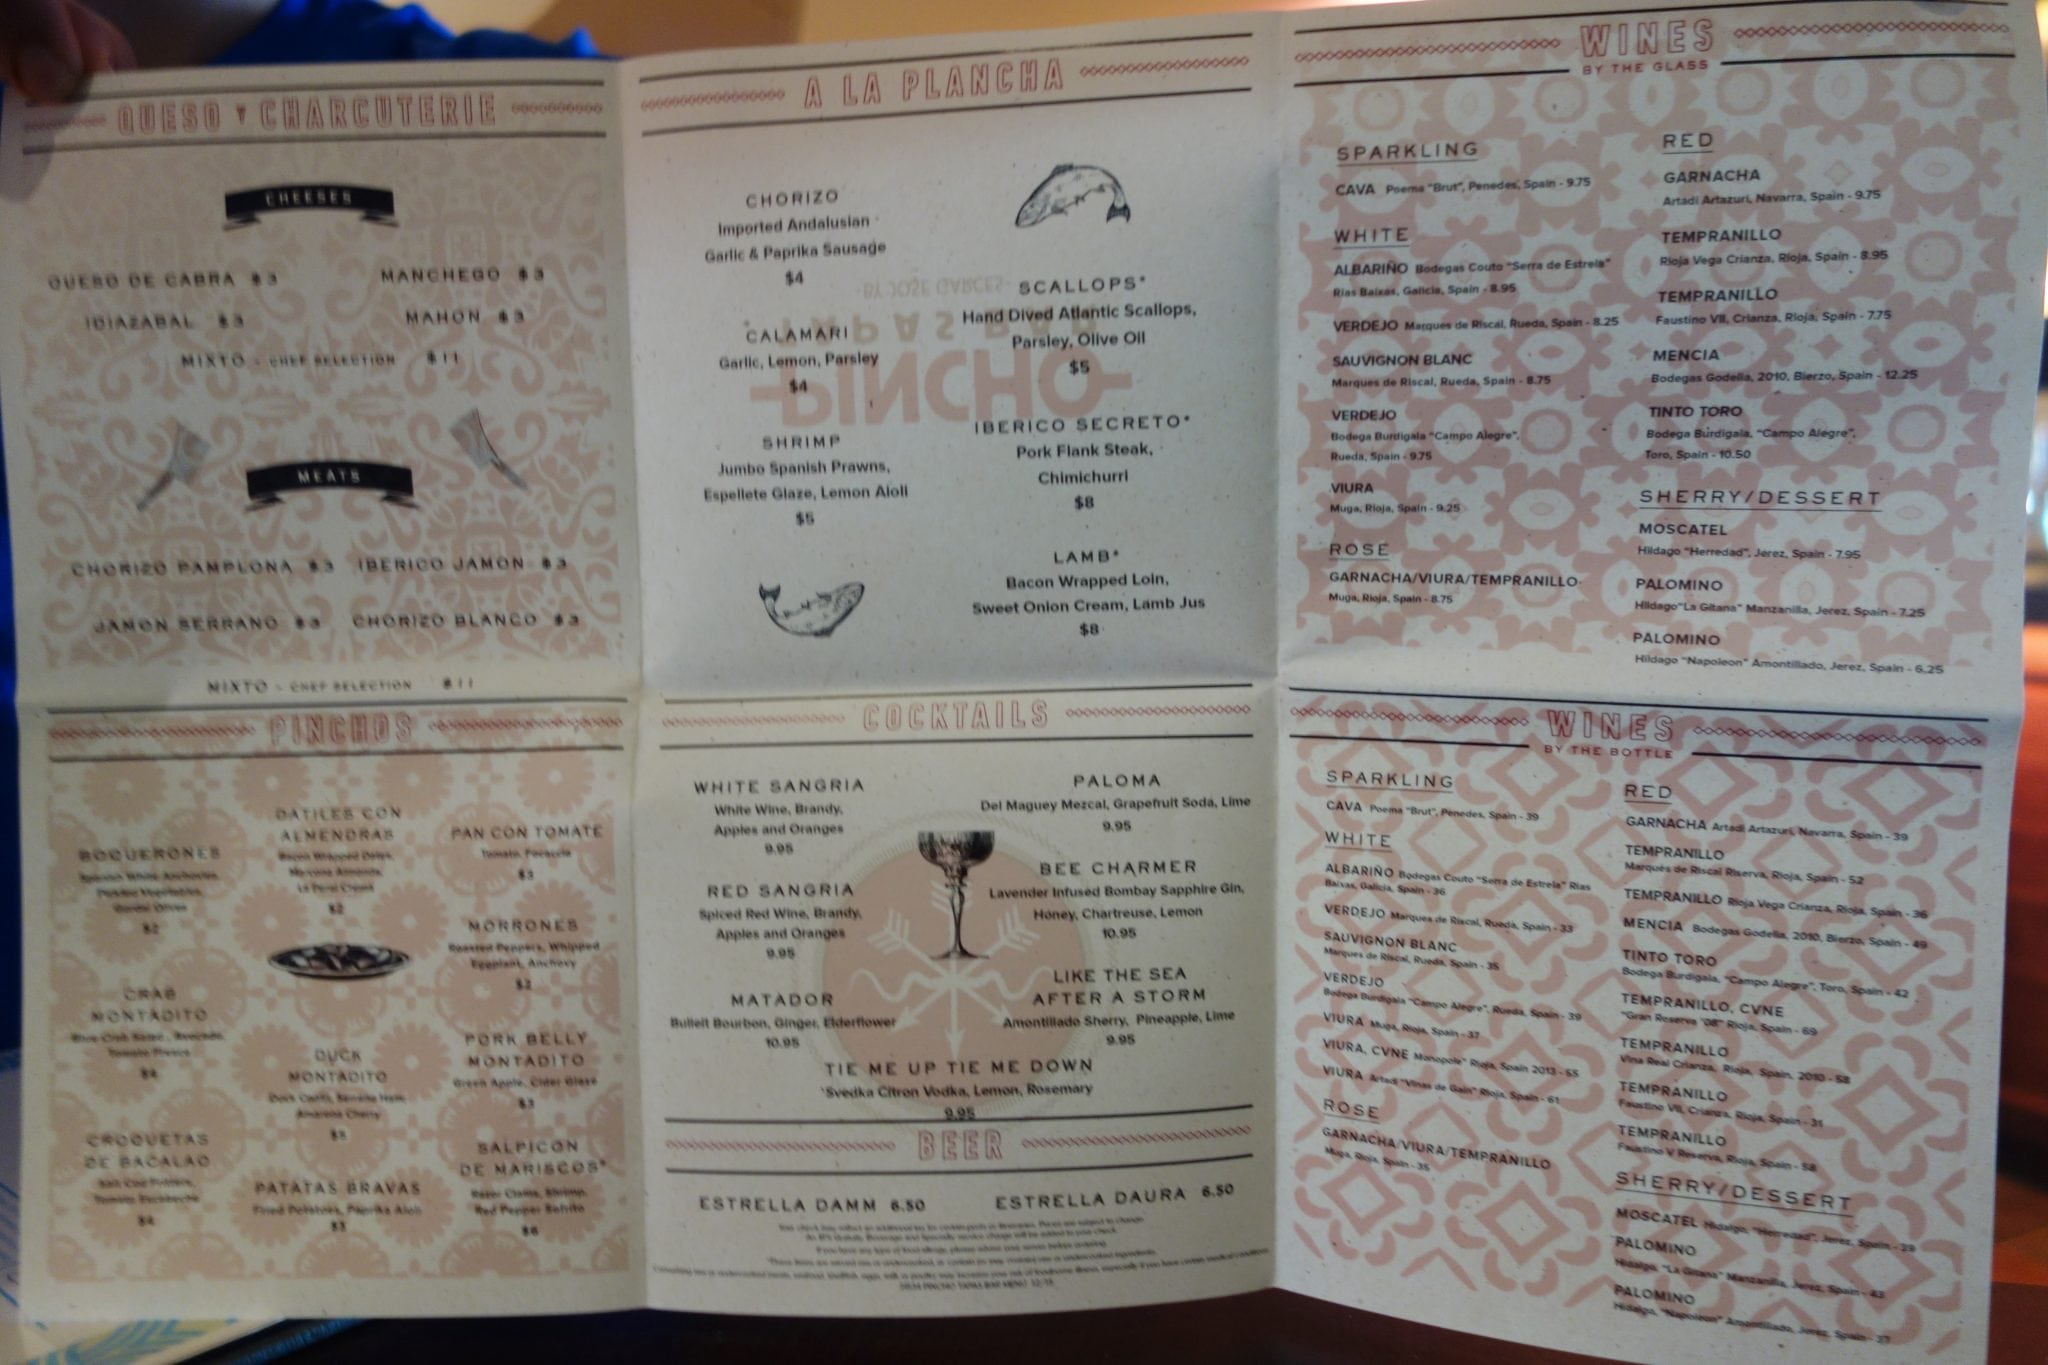 QUESO Y CHARCUTERIE
CHEESES
QUESO DE CABRA $3
MANCHEGO $3
IDIAZABAL $3
MAHON $3
MIXTO - CHEF SELECTION $11
MEATS
CHORIZO PAMPLONA $3
IBERICO JAMON $3
JAMON SERRANO $3
CHORIZO BLANCO $3
MIXTO - CHEF SELECTION $11
PINCHOS
BOQUERONES
Spanish White Anchovies,
$2
CRAB
MONTADITO
$4
CROQUETAS
DE BACALAO
Salt Cod Fritters,
Tomato Escabeche
$4
DATILES CON
ALMENDRAS
Bacon Wrapped Dates,
Marcona Almonds,
La Peral Cream
$2
DUCK
MONTADITO
Duck Confit, Serrano Ham,
Amarena Cherry
$5
PATATAS BRAVAS
Fried Potatoes, Paprika Aioli
$3
PAN CON TOMATE
Tomato, Focaccia
$3
MORRONES
Roasted Peppers, Whipped
Eggplant, Anchovy
$2
PORK BELLY
MONTADITO
Green Apple, Cider Glaze
$3
SALPICON
DE MARISCOS*
Razor Clams, Shrimp,
Red Pepper Sofrito
$6
A LA PLANCHA
CHORIZO
Imported Andalusian
Garlic & Paprika Sausage
$4
CALAMARI
Garlic, Lemon, Parsley
$4
SHRIMP
Jumbo Spanish Prawns,
Espellete Glaze, Lemon Aioli
$5
SCALLOPS*
Hand Dived Atlantic Scallops,
Parsley, Olive Oil
$5
IBERICO SECRETO*
Pork Flank Steak,
Chimichurri
$8
LAMB*
Bacon Wrapped Loin,
Sweet Onion Cream, Lamb Jus
$8
PINCHO
TAPAS BAR
BY JOSE GARCES
COCKTAILS
WHITE SANGRIA
White Wine, Brandy,
Apples and Oranges
9.95
RED SANGRIA
Spiced Red Wine, Brandy,
Apples and Oranges
9.95
MATADOR
Bulleit Bourbon, Ginger, Elderflower
10.95
PALOMA
Del Maguey Mezcal, Grapefruit Soda, Lime
9.95
BEE CHARMER
Lavender Infused Bombay Sapphire Gin,
Honey, Chartreuse, Lemon
10.95
LIKE THE SEA
AFTER A STORM
Amontillado Sherry, Pineapple, Lime
9.95
TIE ME UP TIE ME DOWN
Svedka Citron Vodka, Lemon, Rosemary
9.95
BEER
ESTRELLA DAMM 6.50
ESTRELLA DAURA 6.50
If you have any type of food allergy, please advise your server before ordering.
WINES
BY THE GLASS
SPARKLING
CAVA Poema "Brut", Penedes, Spain - 9.75
WHITE
ALBARIÑO Bodegas Couto "Serra de Estrela"
Rias Baixas, Galicia, Spain - 8.95
VERDEJO Marques de Riscal, Rueda, Spain - 8.25
SAUVIGNON BLANC
Marques de Riscal, Rueda, Spain - 8.75
VERDEJO
Bodega Burdigala "Campo Alegre",
Rueda, Spain - 9.75
VIURA
Muga, Rioja, Spain - 9.25
ROSE
GARNACHA/VIURA/TEMPRANILLO
Muga, Rioja, Spain - 8.75
RED
GARNACHA
Artadi Artazuri, Navarra, Spain - 9.75
TEMPRANILLO
Rioja Vega Crianza, Rioja, Spain - 8.95
TEMPRANILLO
Faustino VII, Crianza, Rioja, Spain - 7.75
MENCIA
Bodegas Godella, 2010, Bierzo, Spain - 12.25
TINTO TORO
Bodega Burdigala, "Campo Alegre",
Toro, Spain - 10.50
SHERRY/DESSERT
MOSCATEL
Hildago "Herredad", Jerez, Spain - 7.95
PALOMINO
Hildago"La Gitana" Manzanilla, Jerez, Spain - 7.25
PALOMINO
Hildago "Napoleon" Amontillado, Jerez, Spain - 6.25
WINES
BY THE BOTTLE
SPARKLING
CAVA Poema "Brut", Penedes, Spain - 39
WHITE
ALBARIÑO Bodegas Couto "Serra de Estrela" Rias
Baixas, Galicia, Spain - 36
VERDEJO Marques de Riscal, Rueda, Spain - 33
SAUVIGNON BLANC
Marques de Riscal, Rueda, Spain - 35
VERDEJO
Bodega Burdigala "Campo Alegre", Rueda, Spain - 39
VIURA Muga, Rioja, Spain - 37
VIURA, CVNE Monopole" Rioja, Spain 2013 - 55
VIURA Artadi "Vinas de Gain" Rioja, Spain - 61
ROSE
GARNACHA/VIURA/TEMPRANILLO
Muga, Rioja, Spain - 35
RED
GARNACHA Artadi Artazuri, Navarra, Spain - 39
TEMPRANILLO
Marqués de Riscal Riserva, Rioja, Spain - 52
TEMPRANILLO Rioja Vega Crianza, Rioja, Spain - 36
MENCIA Bodegas Godella, 2010, Bierzo, Spain - 49
TINTO TORO
Bodega Burdigala, "Campo Alegre", Toro, Spain - 42
TEMPRANILLO, CVNE
"Gran Reserva '08" Rioja, Spain - 69
TEMPRANILLO
Vina Real Crianza, Rioja, Spain, 2010 - 58
TEMPRANILLO
Faustino VII, Crianza, Rioja, Spain - 31
TEMPRANILLO
Faustino V Reserva, Rioja, Spain - 58
SHERRY/DESSERT
MOSCATEL Hidalgo, "Herredad", Jerez, Spain - 39
PALOMINO
Hidalgo, "La Gitana" Manzanilla, Jerez, Spain - 43
PALOMINO
Hidalgo, "Napoleon" Amontillado, Jerez, Spain - 37